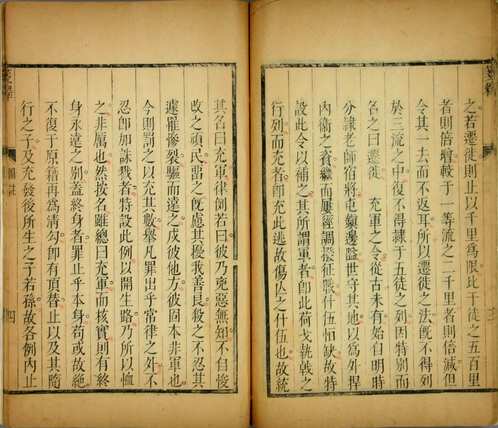 之若遷徙則止以千里爲限比于徒之五百里
者則倍增較于一等流之二千里者則倍減但
令其一去而不返耳所以遷徙之法旣不得列
於三流之中復不得隷于五徒之列因特別而
名之曰遷徙　充軍之令從古未有始自明時
分隷老師宿將屯頓邊隘世守其地以爲外捍
內衛之資繼而屢經調撥征什伍缺故特
設此令以補之其所謂軍者卽此荷戈執戟之
行列而充者卽充此逃故傷亾之什伍也故統
其名曰充軍律例若曰彼乃兇惡無知不自悛
改之頑民畱之旣慮其擾我善良殺之不忍其
遽罹慘裂驅而遠之戍彼他方彼固本非軍也
今則罰之以充其數擧凡罪出乎常律之外不
忍卽加誅戮者特設此例以開生路乃所以恤
之非厲也然按名雖總曰充軍而核實則有終
身永遠之別蓋終身者罪止乎本身苟或故絶
不復于原籍再爲淸勾卽有頂替止以及其隨
行之子及充發後所生之子若孫故各例內止